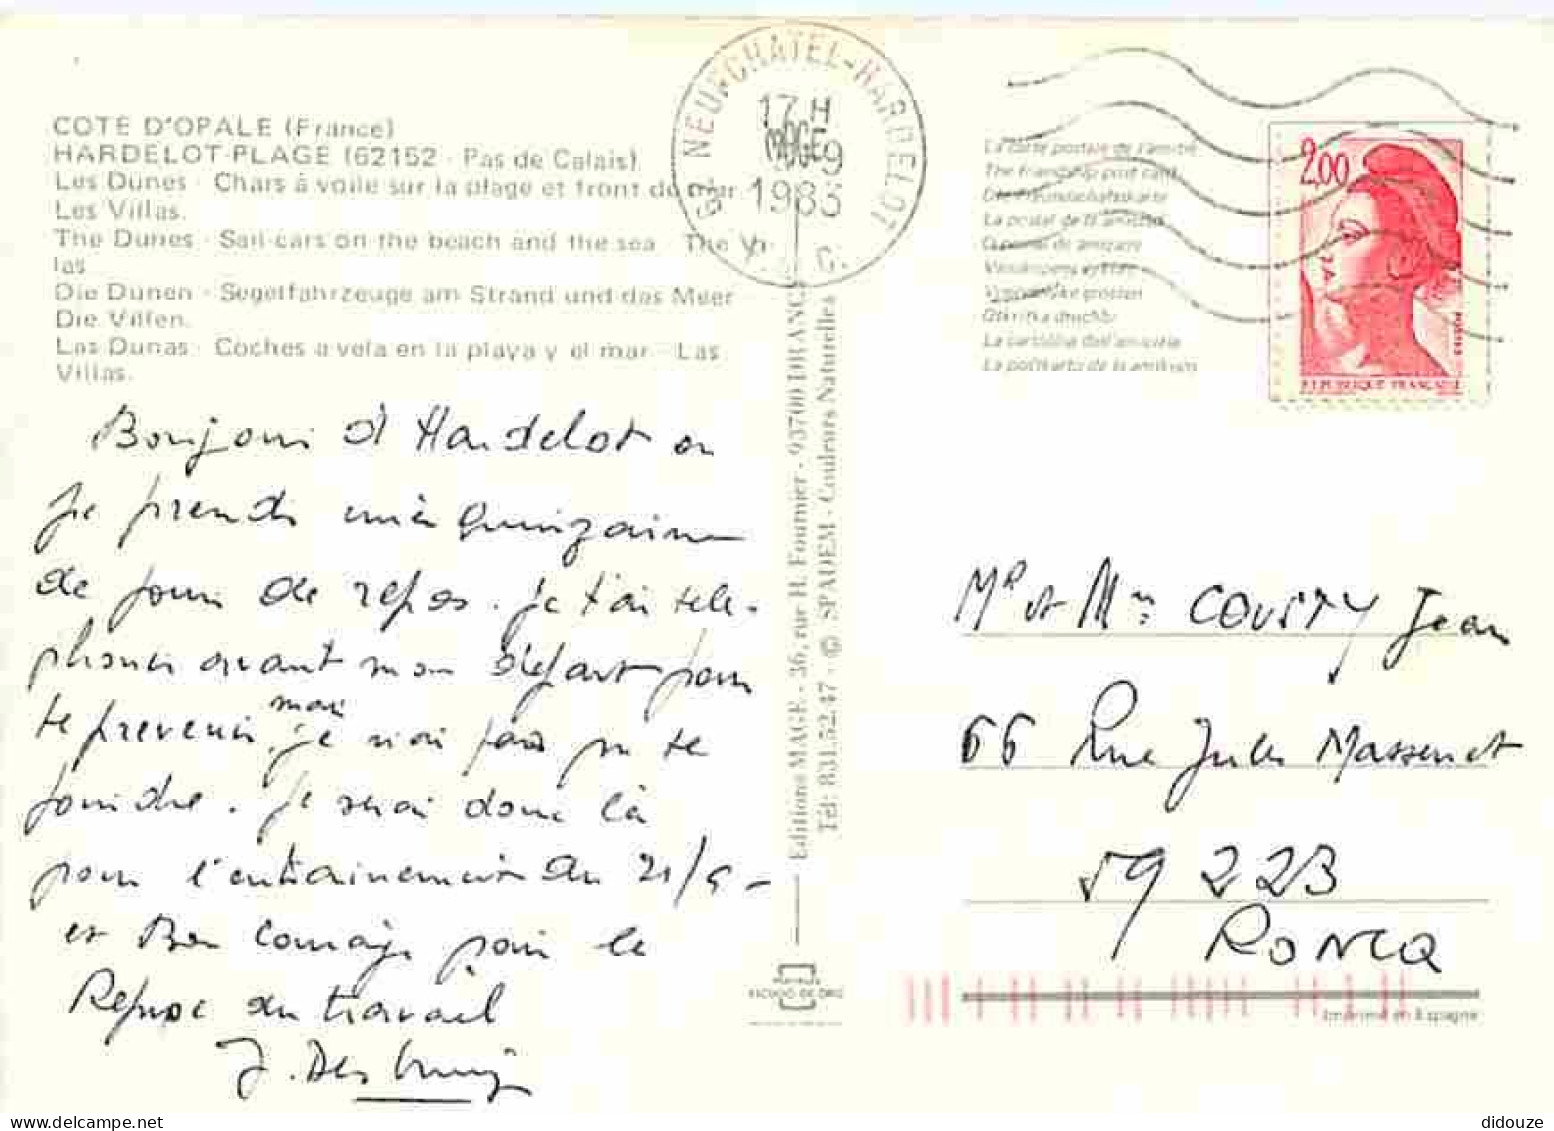 COTE D'OPALE (France)
HARDELOT-PLAGE (62152 - Pas de Calais)
Les Dunes - Chars à voile sur la plage et front de mer
Les Villas.
The Dunes - Sail-cars on the beach and the sea - The Vil-
las
Die Dünen - Segelfahrzeuge am Strand und das Meer
Die Villen.
Las Dunas - Coches a vela en la playa y el mar - Las
Villas.
Bonjour d'Hardelot où
Je prends une quinzaine
de jours de repos. Je t'ai télé-
phoner avant mon départ pour
te prévenir, mais je n'ai pas pu te
joindre. Je serai donc là
pour l'entrainement du 21/9 -
et Bon Courage pour la
Reprise du travail
62 NEUFCHATEL-HARDELOT
17 H
9
1983
P. DE C.
Editions MAGE - 36, rue H. Fournier - 93700 DRANCY
Tél: 831.52.47 - © SPADEM - Couleurs Naturelles
ESCUDO DE ORO
La carte postale de l'amitié
The friendship post card
Die Freundschaftskarte
La postal de la amistad
O postal da amizade
La cartolina dell'amicizia
2,00
REPUBLIQUE FRANÇAISE
POSTES
Mr et Mme COUSTY Jean
66 Rue Jules Massenet
59 223
RONCQ
Imprimé en Espagne
didouze